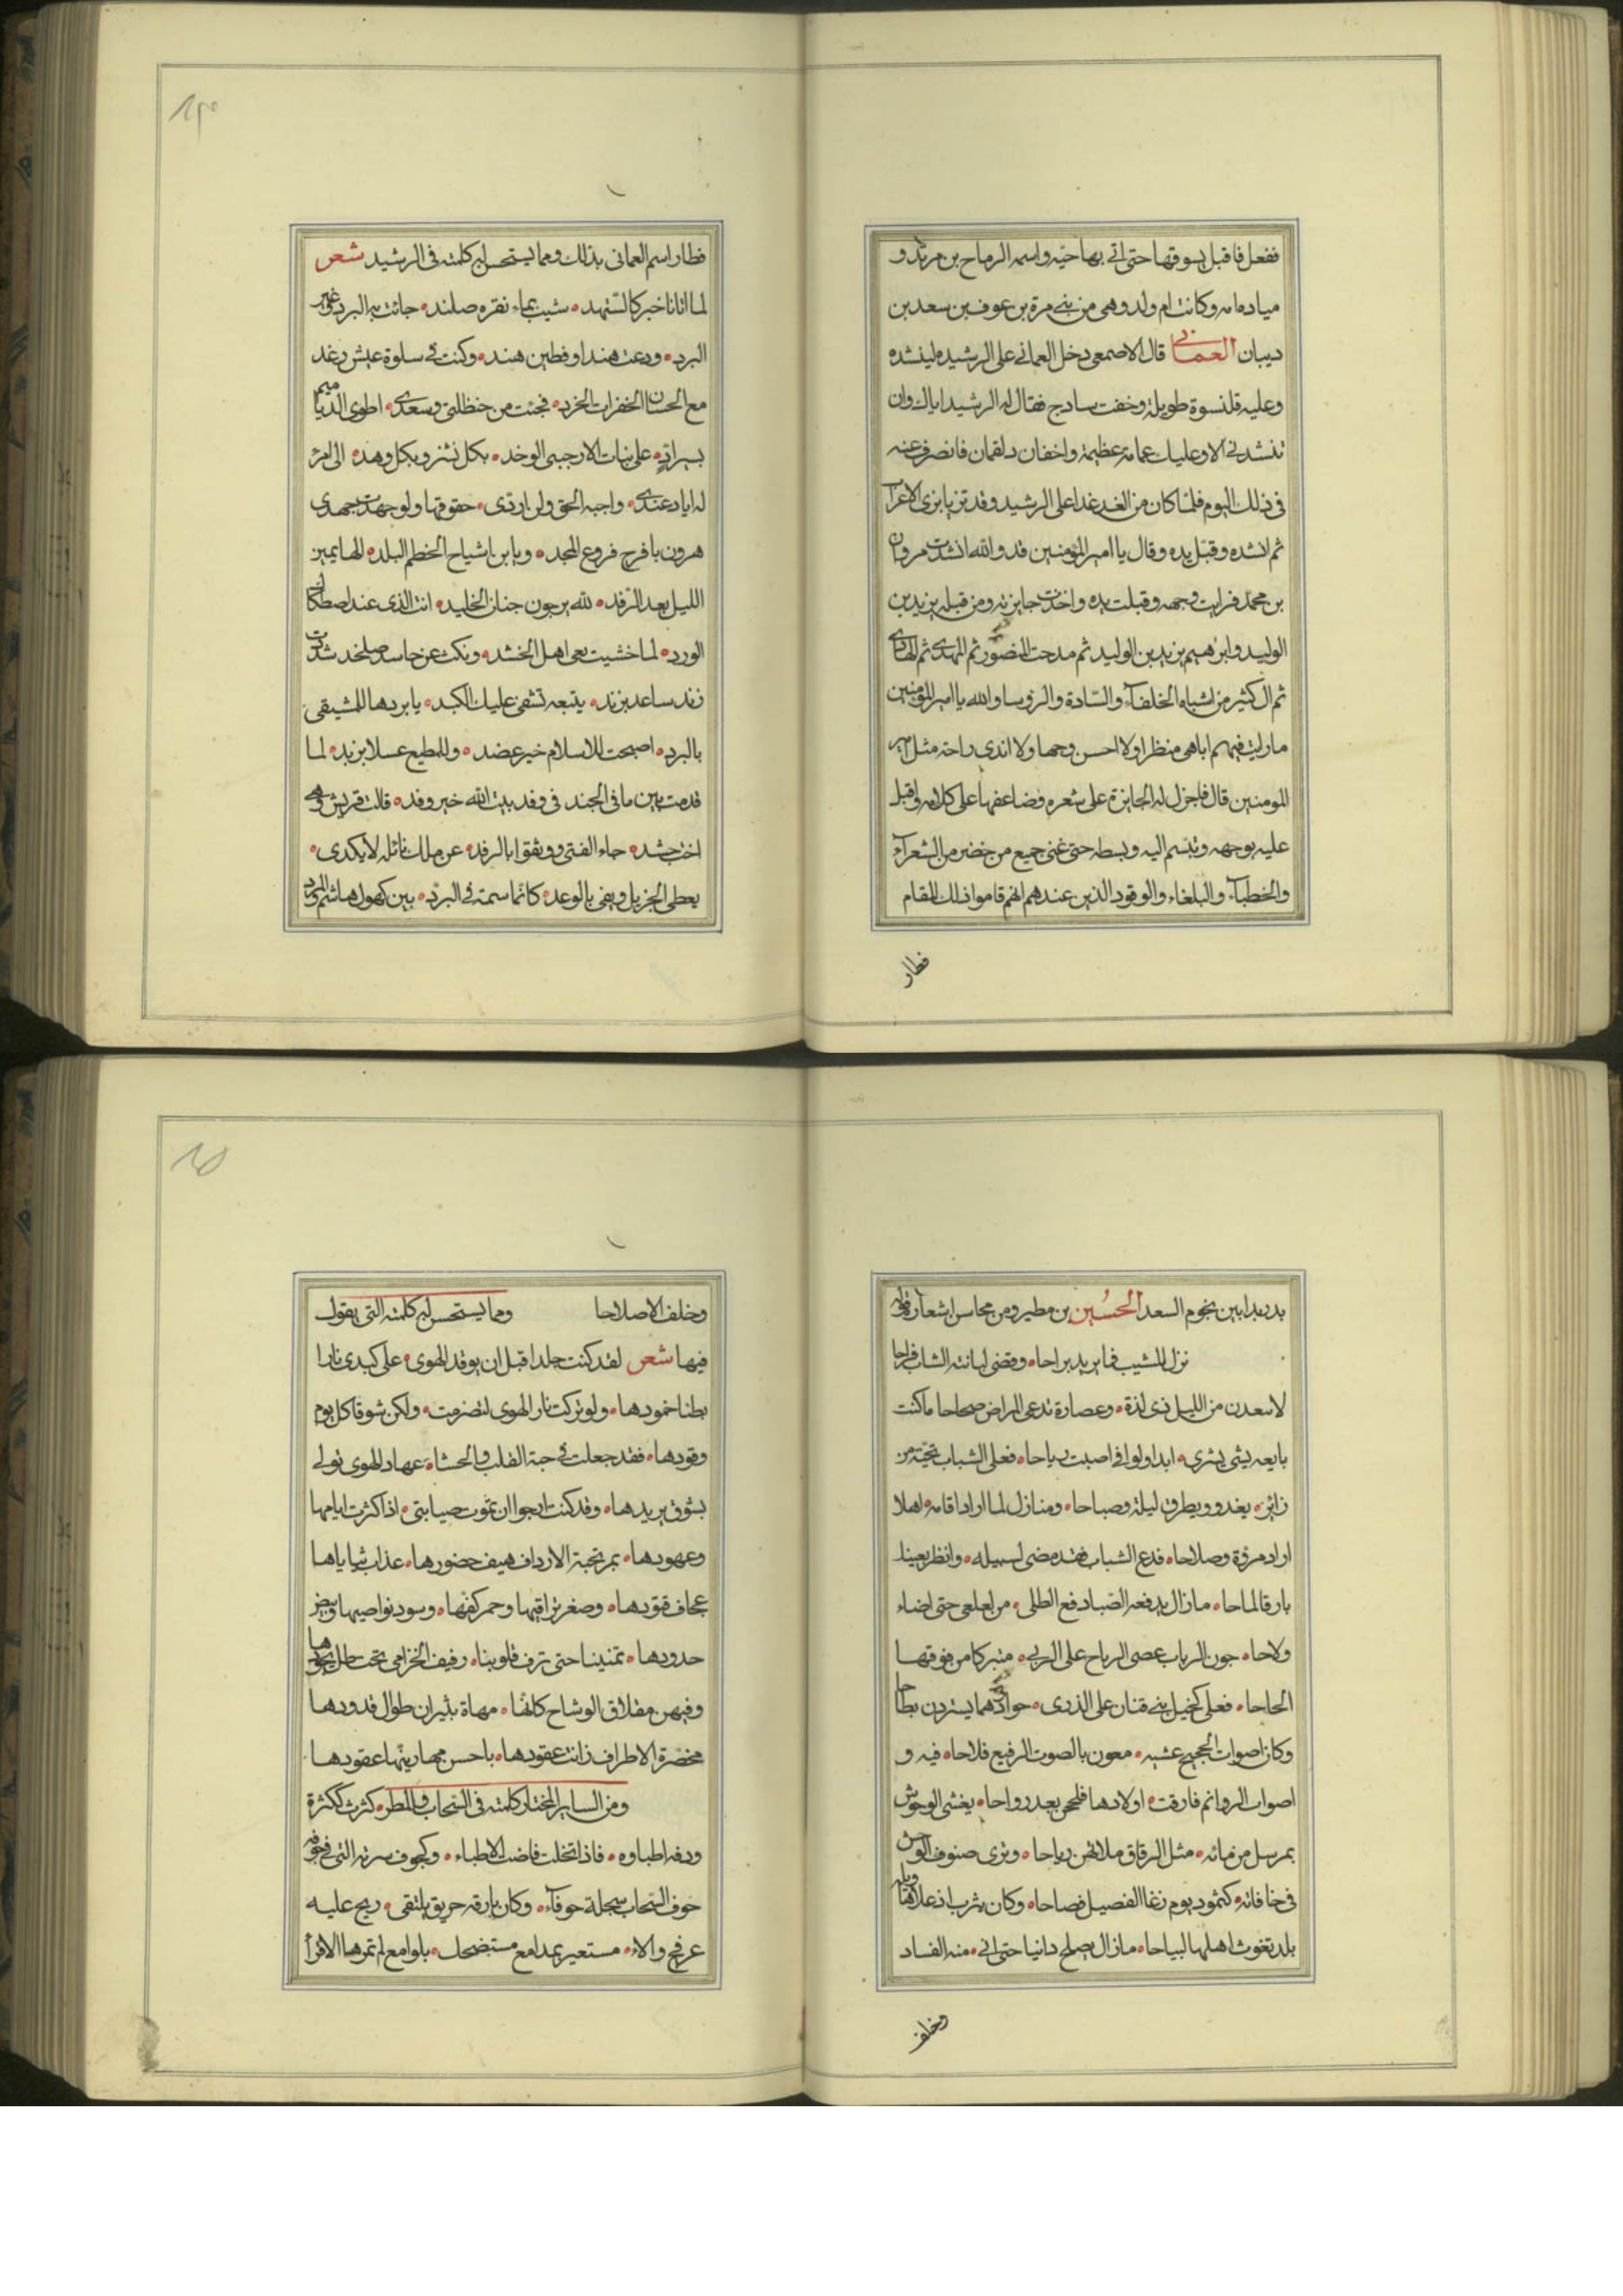 ففعل فاقبل يسوقها حتى اتى بها حيّه واسمه الرماح بن مرثد و
ميادة امه وكانت ام ولد وهى من بنى مرة بن عوف بن سعد بن
ديبان العمانى قال الاصمعى دخل العمانى على الرشيد لينشده
وعليه قلنسوة طويلة وخفت سادج فقال له الرشيد اياك وان
تنشدنى الا وعليك عمامة عظيمة واخفان دلقمان فانصرف عنه
فى ذلك اليوم فلمّا كان من الغد غدا على الرشيد وقد تزيا بزى الاعراب
ثم انشده وقبّل يده وقال يا امير المؤمنين قد والله انشدت مروان
بن محمد فرايت وجهه وقبلت يده واخذت جايزته ومن قبله يزيد بن
الوليد وابرهيم بن يزيد بن الوليد ثم مدحت المنصور ثم المهدى ثم الهادى
ثم ال كثير من اشباه الخلفآء والسّادة والروسا والله يا امير المؤمنين
ما رايت فيهم ابهى منظرا ولا احسن وجها ولا اندى راحة مثل امير
المومنين قال فاجزل له الجايزة على شعره وضاعفها على كلامه واقبل
عليه بوجهه وتبسم اليه وبسطه حتى غنى جميع من حضر من الشعرآء
والخطبآء والبلغاء والوفود الذين عندهم انهم قاموا ذلك المقام
فطار
فطار اسم العمانى بذلك ومما يستحسن له كلمته فى الرشيد شعر
لما اتانا خبر كالشهد شيب بماء نقره صلند جائت به البرد غير
البرد ودعت هندا وقطين هند وكنت فى سلوة عيش رغد
مع الحسان الخفرات الخرد فجئت من حنظلتى وسعدى اطوى الدياميم
على بنات الارحبى الوخد بكل نشز وبكل وهد الى امرئ
له اياد عندى واجبه الحق ولن اردى حقوقها ولو جهدت جهدى
هرون يا فرج فروع المجد ويا بن اشياح الخطم البلد لها يمين
الليل بعد الرّقد لله يرجون جنان الخليد انت الذى عند اصطكاك
الورد لما خشيت بعى اهل الخشد ونكث عن حاسد صلخد شدت
زند ساعد بزند يتبعه تشفى عليك الكبد يا بردها للمشيقى
بالبرد اصبحت للاسلام خير عضد وللمطيع عسلا بزبد لما
قدمت بين مافى الجند فى وفد بيت الله خير وفد قالت قريش وهى
اخت حشد جاء الفتى ووثقوا بالرفد عن ملك نائله لا يكدى
يعطى الجزيل ويفى بالوعد كانّما سمته فى البرّد بين كهول هاشم والمرد
بدر بدا بين نجوم السعد الحُسين بن مطير ومن محاسن اشعاره قوله
نزل المشيب فما يريد براحا وقضى لبانته الشباب فراحا
لا تبعدن من الليل ذى لذة وعصارة تدعى المراض صحاحا ما كنت
بايعه بشى يشرى ابدا ولو افى اصبت رباحا فعلى الشباب تحيّة من
زائر يغدو ويطرق ليلة وصباحا ومنازل لما اراد اقامة اهلا
اراد مروّة وصلاحا فدع الشباب فقد مضى لسبيله وانظر بعينك
بارقا لماحا ما زال يدفعه الصّبا دفع الطلى من لعلع حتى اضاء
ولاحا جون الرباب عصى الرياح على الربى متبركا من فوقها
الحاحا فعلى كخيل بنى قنان على الذرى يستردن بطاحا
وكان اصوات الحجيج عشيه معون بالصوت الرفيع فلاحا فيه و
اصوات الروائم فارقت اولادها فلججن بعد رواحا يغشى الوحوش
بمرسل من مائه مثل الرقاق ملائهن رياحا وترى صنوف الوحش
فى حافاته كثمود يوم رغا الفصيل فصاحا وكان يثرب اذ علاها وبله
بلد تغوث اهلها البياحا ما زال يصلح دانيا حتى انى منه الفساد
وخلف
وخلف الاصلاحا ومما يستحسن له كلمته التى يقول
فيها شعر لقد كنت جلدا قبل ان يوقد الهوى على كبدى نارا
بطنا خمودها ولو تركت نار الهوى لتضرمت ولكن شوقا كل يوم
وقودها فقد جعلت فى حبة القلب والحشا عهاد الهوى تولى
بشوق يريدها وقد كنت ارجوا ان تموت صبابتى اذا كثرت ايامها
وعهودها بمرتجبة الارداف هيف خصورها عذاب ثناياها
عجاف قوودها وصغر تراقيها وحمر كفها وسود نواصيها وبيض
خدودها تمنيننا حتى ترف قلوبنا رفيف الخزامى تحت طل يجودها
وفيهن مقلاق الوشاح كانّها مهاة بثيران طوال قدودها
مخضرة الاطراف زانت عقودها باحسن مما زينتها عقودها
ومن السّاير المختار كلمته فى السّحاب والمطر كثرت ككثرة
ودقه اطباوه فاذا تخلت فاضت الاطباء وكجوف سرته التى فى جوفه
جوف السّحاب سجلة جوفآء وكان بارقه حريق يلتقى ريح عليه
عرفج والاء مستعير بمدامع مستبضحك بلوامع لم تمرها الاقرا